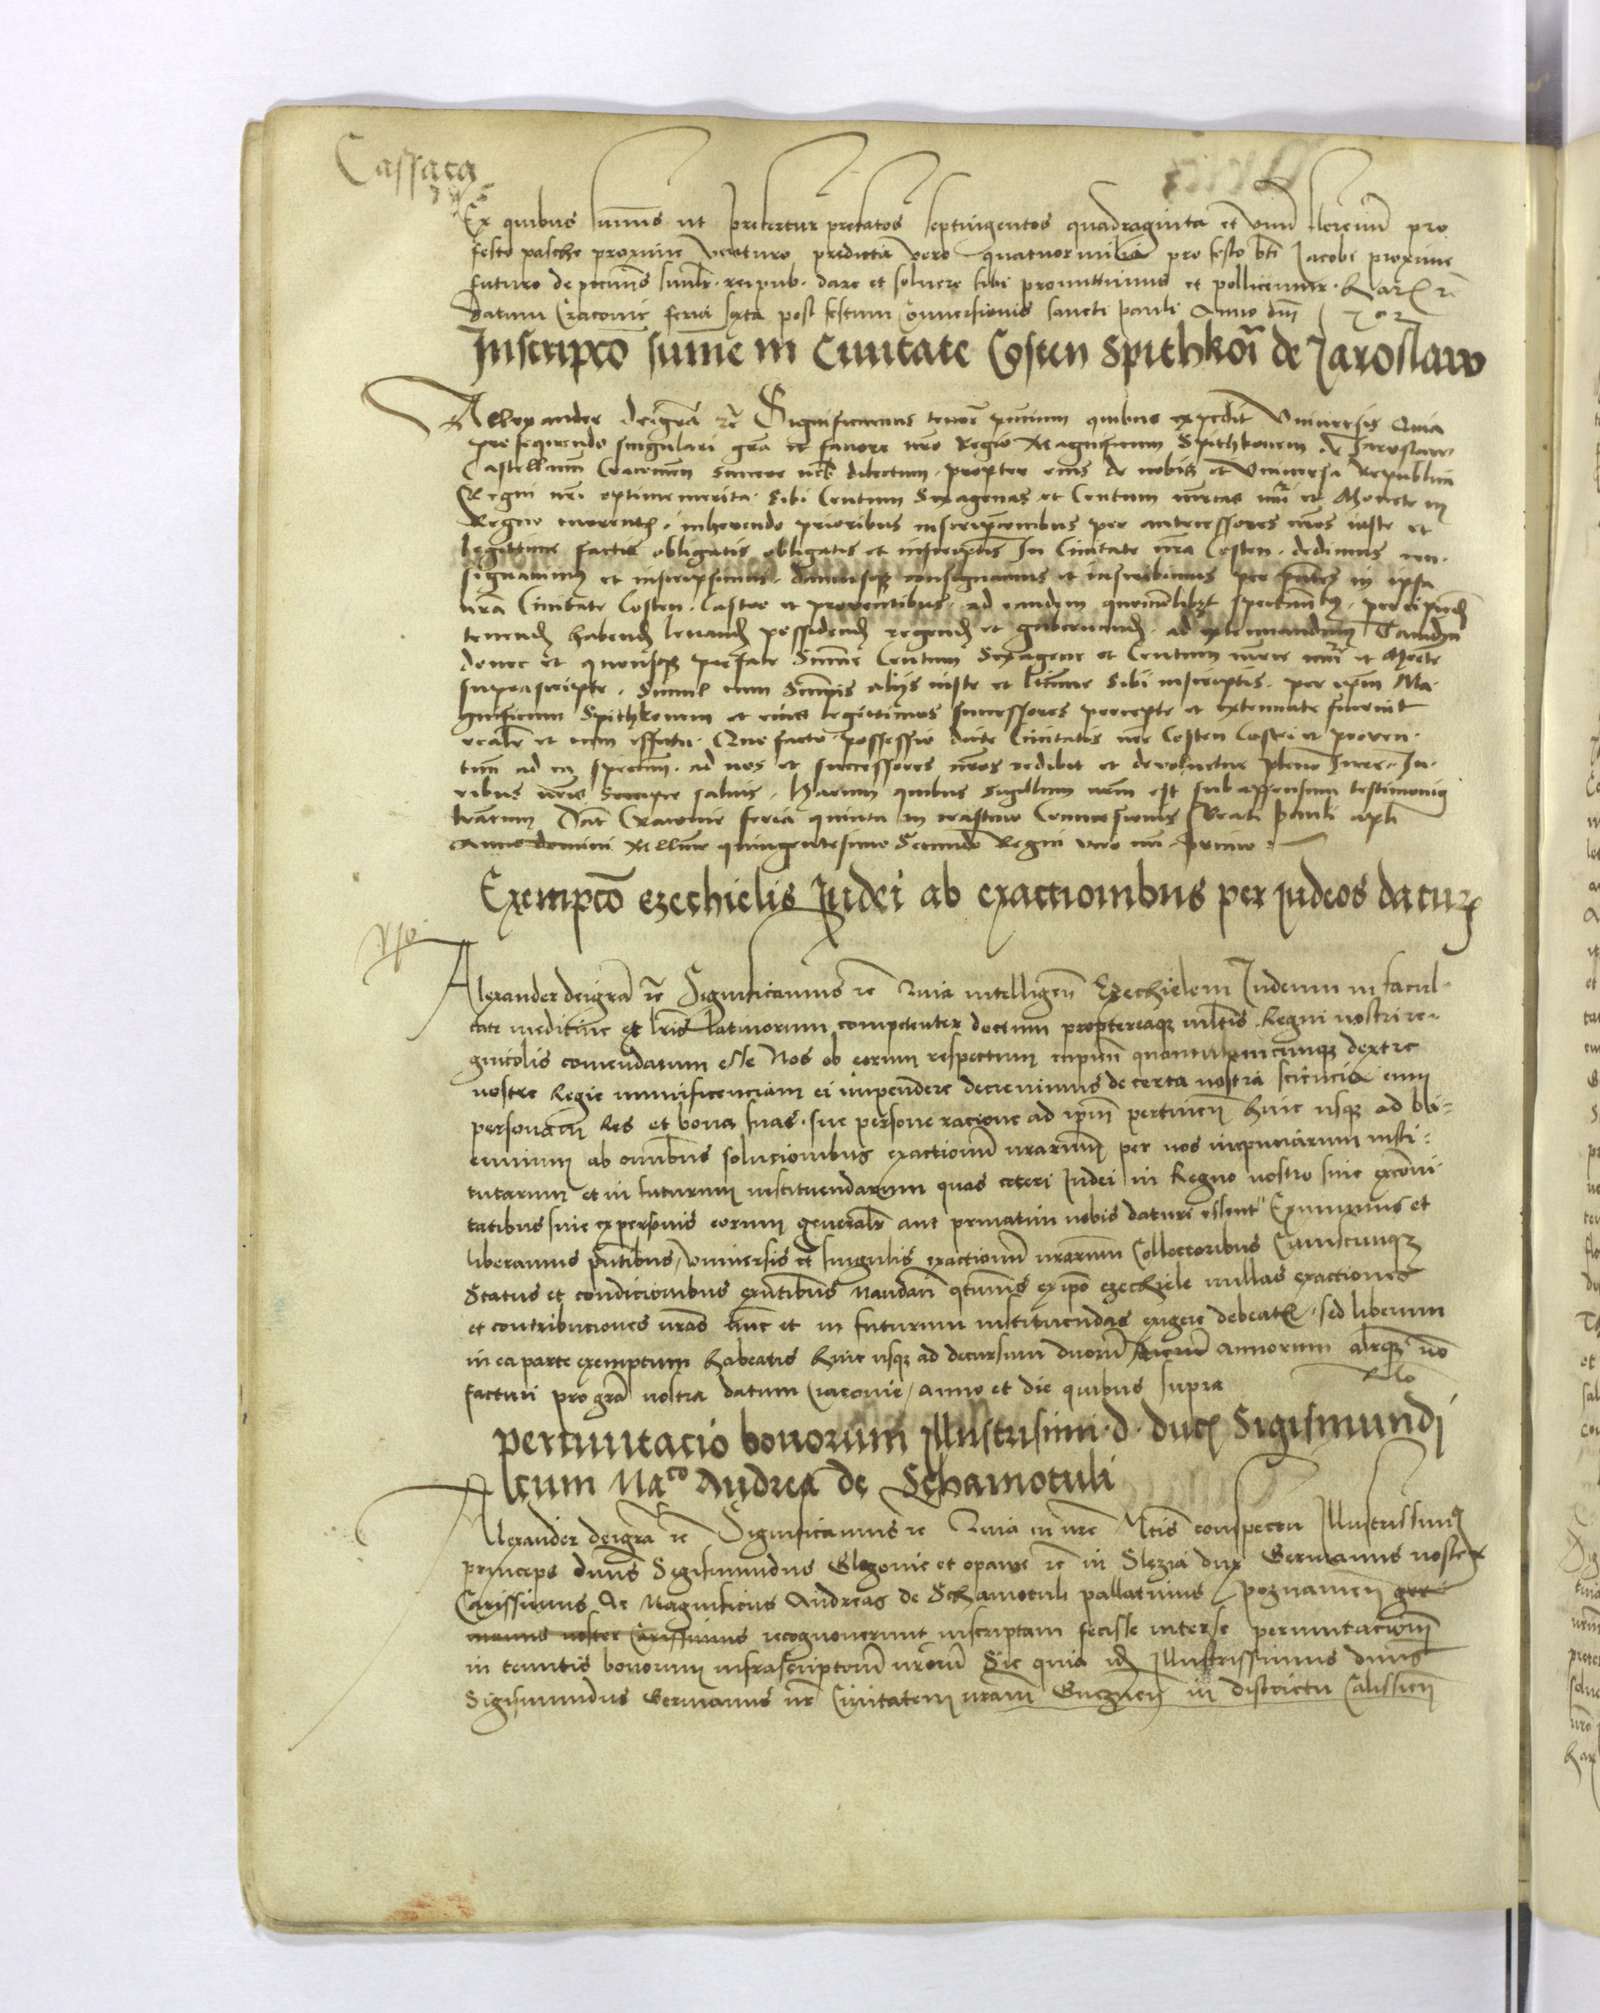 Cassata
Ex quibus sumus ut prefertur prefatos septuingentos quadraginta et unum florenum pro
festo pasche proxime venturo predicta vero quatuor milia pro festo bti Jacobi proxime
futuro de pecuniis reipub. dare et solvere sibi promittimus et pollicemur. Har rc
datum Cracovie feria sexta post festum Conversionis sancti pauli Anno dni
Inscripco summe in Civitate Costen Spithkoni de Jaroslaw
Allexander deigra rc Significamus tenore pntium quibus expedit Universis Quia
prosequendo singulari gra et favore nro Regio Magnificum Spithkonem de Jaroslaw
Castellanum Cracoviem sincere nobis dilectum. propter eius de nobis et Universa Republica
Regni nri optime merita. sibi Centum Sexagenas et Centum marcas nri et Monete in
Regno currentis. inherendo prioribus inscripcionibus per antecessores nros iuste et
legittime factis obligatis et inscriptis In Civitate nra Costen. dedimus con-
signavimus et inscripsimus. damusque consignamus et inscribimus per pntes in ipsa
nra Civitate Costen. Castro et proventibus. ad eandem spectantibus. percipiend
tenend habend levand possidend regend et gubernand. ad extenuandum Tamdiu
donec et quousque prefate Summe Centum Sexagene et Centum marce nri et Monete
suprascripte. Simul cum Summis aliis iuste et legitime sibi inscriptis. per ipsum Ma-
gnificum Spithkonem et eius legittimos successores percepte et extenuate fuerint
realiter et cum effectu. Quo facto possessio dicte Civitatis nre Costen Castri et proven-
tum ad ea spectan. ad nos et successores nros redibit et devolvetur pleno Jure. Ju-
ribus nris Semper salvis. Harum quibus sigillum nrum est subappensum testimonio
lrarum Dat Cracovie feria quinta in crastino Conversionis Beati pauli apli
Anno domini Millmo quingentesimo Secundo Regni vero nri primo
Exempco ezechielis Judei ab exactionibus per judeos datur
Alexander deigra rc Significamus rc Quia intelligen Ezechielem Judeum in facul-
tate medicine et lris latinorum competenter doctum proptereaque multis Regni nostri re-
gnicolis comendatum esse Nos ob eorum respectum cupien quantulamcunque dextre
nostre Regie munificenciam ei impendere decrevimus de certa nostra sciencia eum
personam Res et bona suas. sue persone racione ad ipsum pertinen huic usque ad bi-
ennium ab omnibus solucionibus exactionum nrarum per nos insti-
tutarum et in futurum instituendarum quas ceteri Judei in Regno nostro sive ex comuni-
tatibus sive ex personis eorum generaliter aut privatim nobis daturi essent Eximimus et
liberamus pntibus, universis et singulis exactionum nrarum Collectoribus Cuiuscunque
Status et condicionibus existentibus Mandan quatenus ex ipso ezechiele nullas exactiones
et contribuciones nras nunc et in futurum instituendas exigere debeatis. sed liberum
in ea parte exemptum habeatis huic usque ad decursum duorum annorum aliterque non
facturi pro gra nostra datum Cracovie, anno et die quibus supra
Rlo
permutacio bonorum Illustrisimi d. ducis Sigismundi
cum Maco Andrea de Schamotuli
Alexander deigra rc Significamus rc Quia in nre Mtis conspectu Illustrissimus
princeps dnus Sigismundus Glogovie et opavie rc in Slezia dux Germanus noster
Carissimus Ac Magnificus Andreas de Schamotuli pallatinus poznanien ger-
manus noster Carissimus recognoverunt inscriptam fecisse inter se permutacionem
in tenutis bonorum infrascriptorum nrorum Sic quia idem Illustrissimus dnus
Sigismundus Germanus nr Civitatem nram Gneznen in districtu Calissien